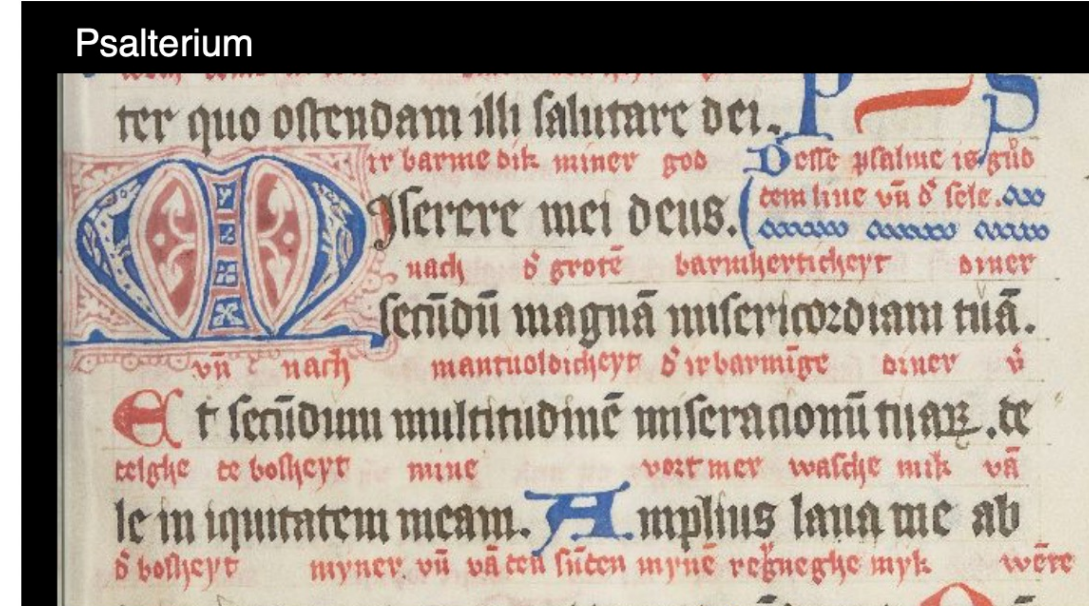 Psalterium
ter quo ostendam illi salutare dei.
ir barme dik miner god Desse psalme is guͦd
Iserere mei deus. tem liue vn̄ d' sele.
nach d' grotē barmherticheyt diner
secūdū magnā misericordiam tuā.
vn̄ nach manicuoldicheyt d' irbarmīge diner v̄
Et secūdum multitudinē miseracionū tuaꝝ. de
telghe de bosheyt mine vort mer wasche mik vā
le in iquitatem meam. Amplius laua me ab
d' bosheyt myner vn̄ vā den sūden mynē reyneghe myk wēte